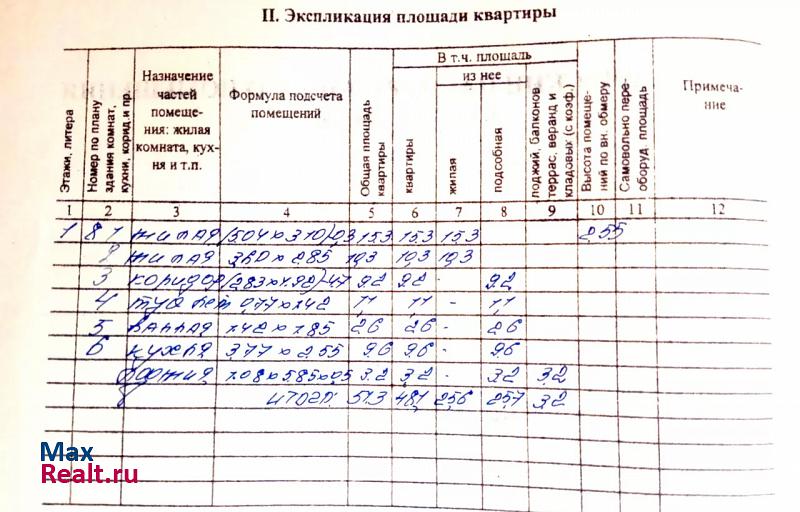 II. Экспликация площади квартиры
Этажи, литера
Номер по плану здания комнат, кухни, корид.и пр.
Назначение частей помеще-ния: жилая комната, кух-ня и т.п.
Формула подсчета помещений
Общая площадь квартиры
В т.ч. площадь
из нее
квартиры
жилая
подсобная
лоджий, балконов, террас, веранд и кладовых (с коэф.)
Высота помеще-ний по вн. обмеру
Самовольно пере-оборуд. площадь
Примеча-ние
1 2 3 4 5 6 7 8 9 10 11 12
1 8 1 жилая (5,04 х 3,10)-0,3 15,3 15,3 15,3 2,55
2 жилая 3,60 х 2,85 10,3 10,3 10,3
3 коридор (2,83 х 4,92)-4,7 9,2 9,2 - 9,2
4 туалет 0,77 х 1,42 1,1 1,1 - 1,1
5 ванная 1,42 х 1,85 2,6 2,6 - 2,6
6 кухня 3,77 х 2,55 9,6 9,6 - 9,6
лоджия 1,08 х 5,85 х 0,5 3,2 3,2 - 3,2 3,2
итого: 51,3 48,1 25,6 25,7 3,2
Max
Realt.ru